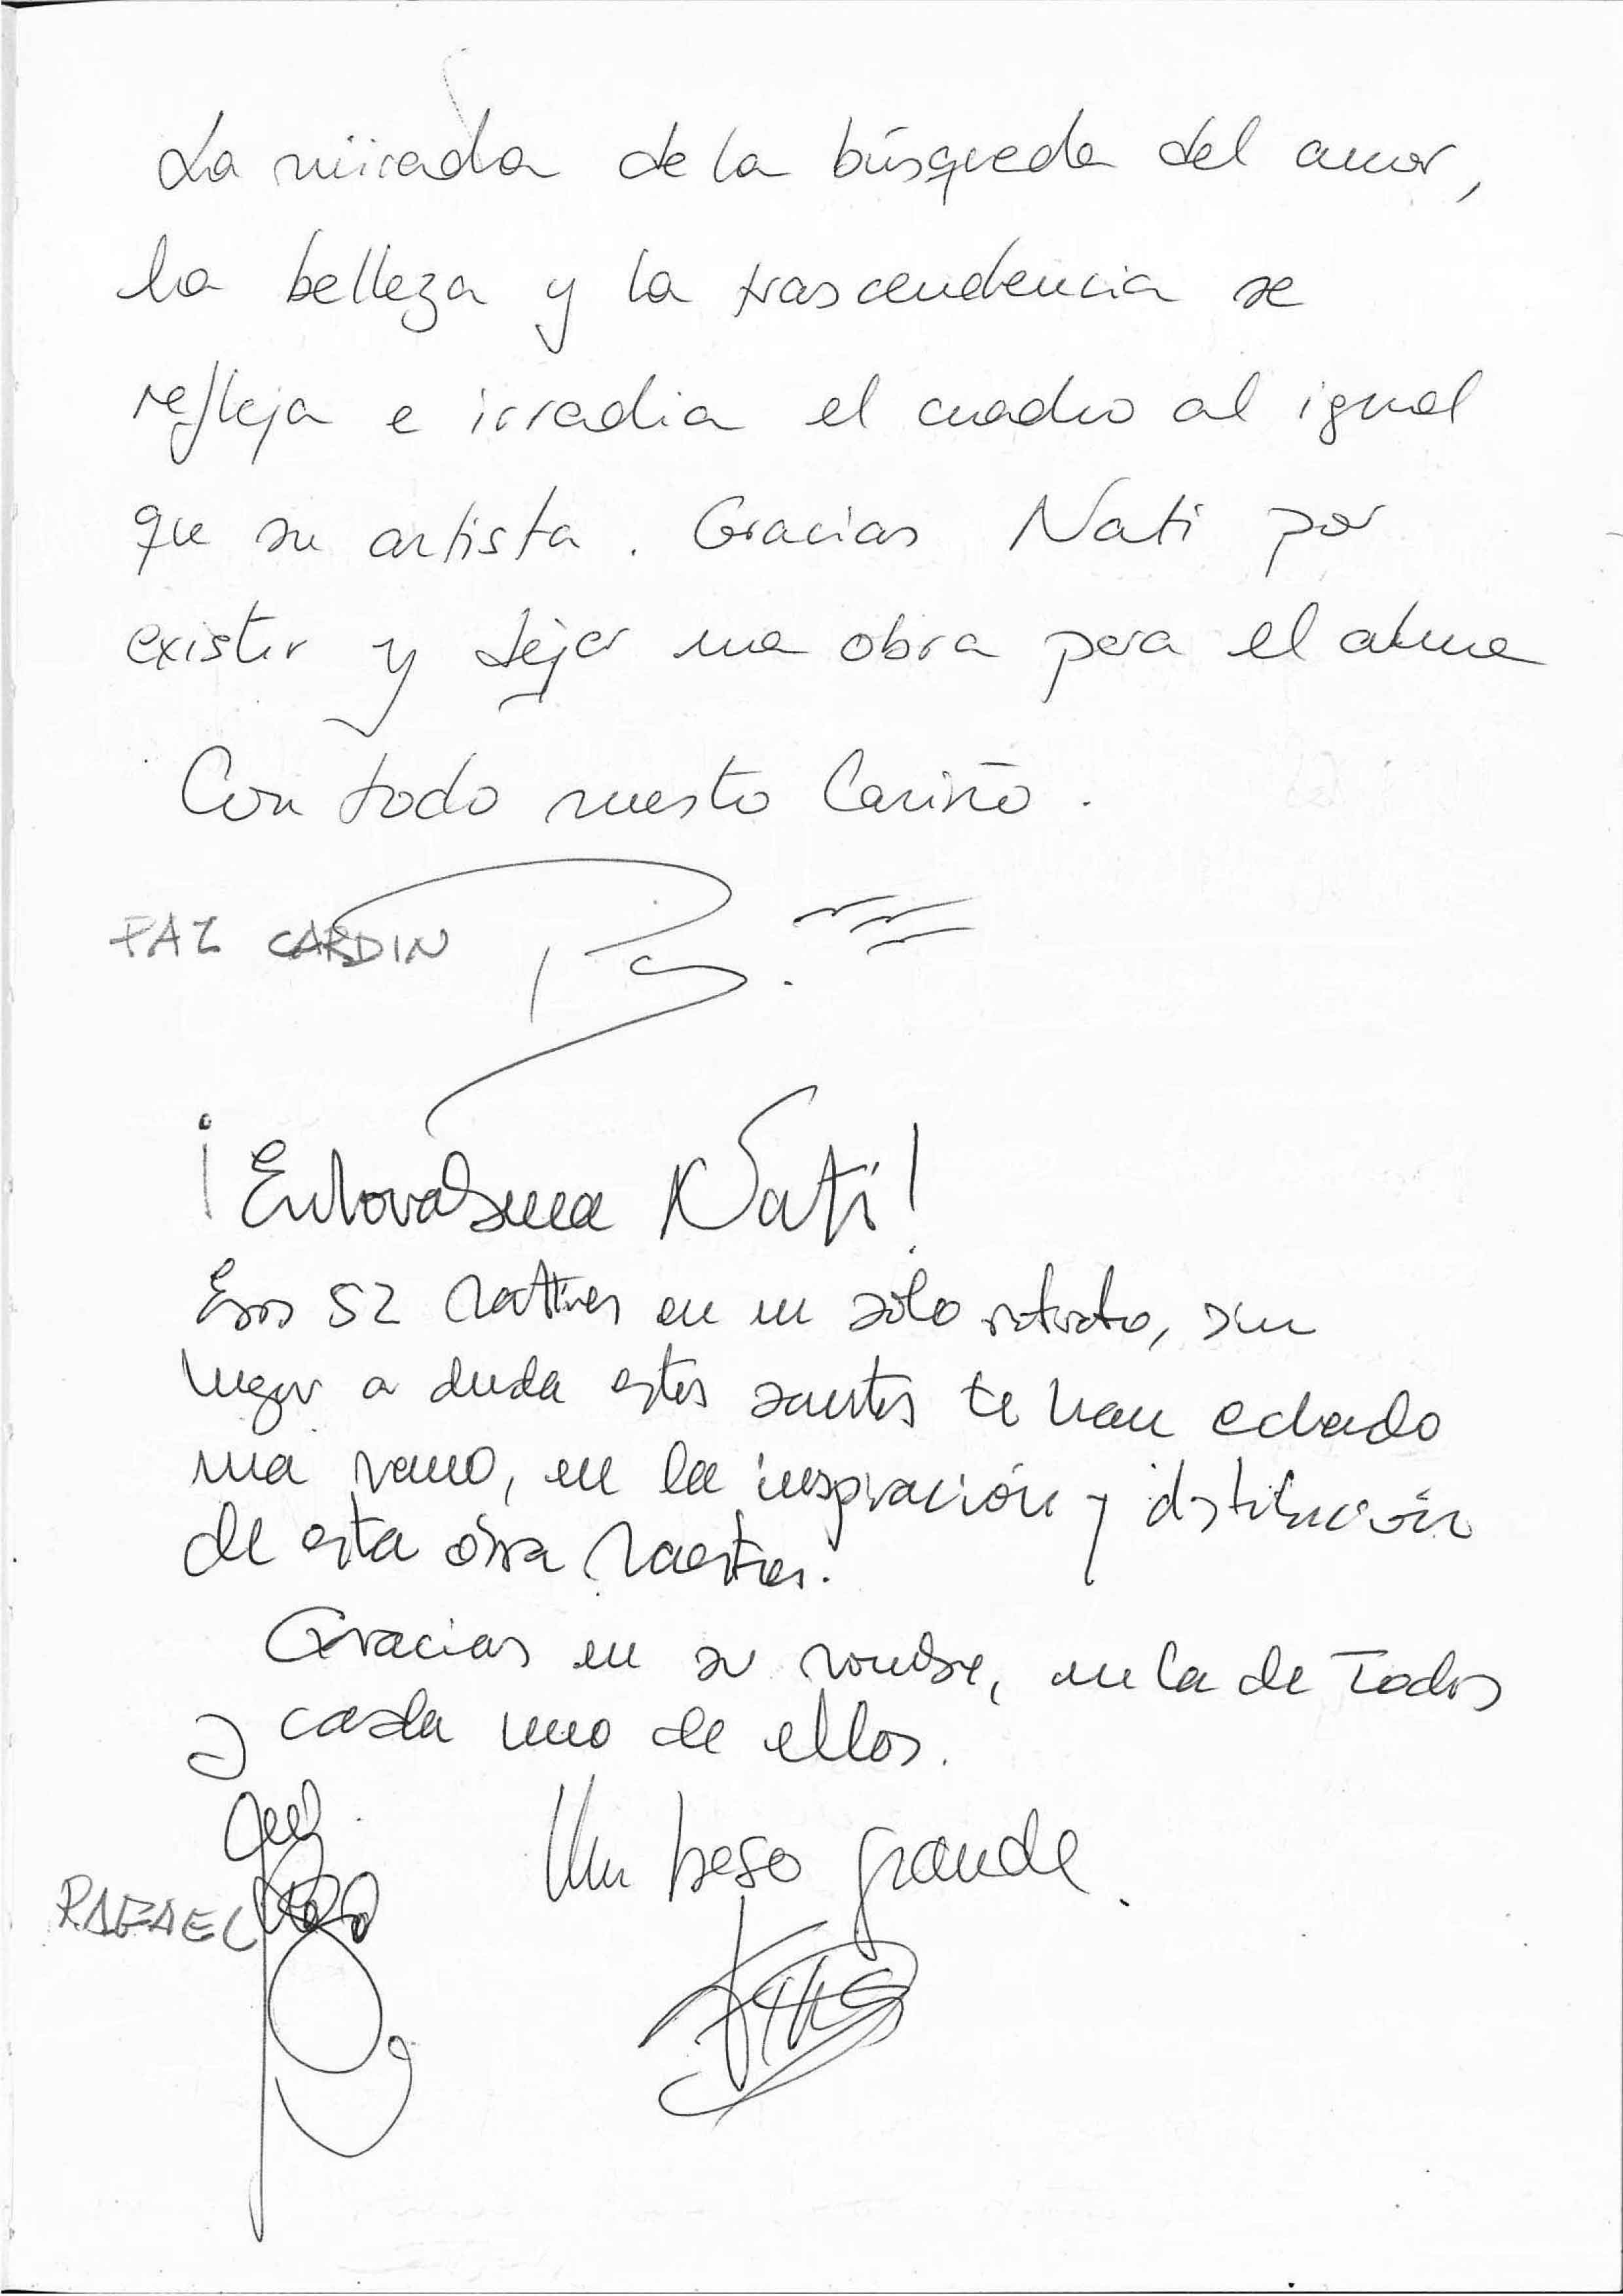 La mirada de la búsqueda del amor,
la belleza y la trascendencia se
refleja e irradia el cuadro al igual
que su artista. Gracias Nati por
existir y dejar una obra para el alma
Con todo nuesto Cariño.
PAZ CARDIN
¡Enhorabuena Nati!
Esos 52 mártires en un sólo retrato, sin
lugar a duda estos santos te han echado
una mano, en la inspiración y distribución
de esta obra maestra.
Gracias en su nombre, en la de Todos
y cada uno de ellos.
Un beso grande.
RAFAEL